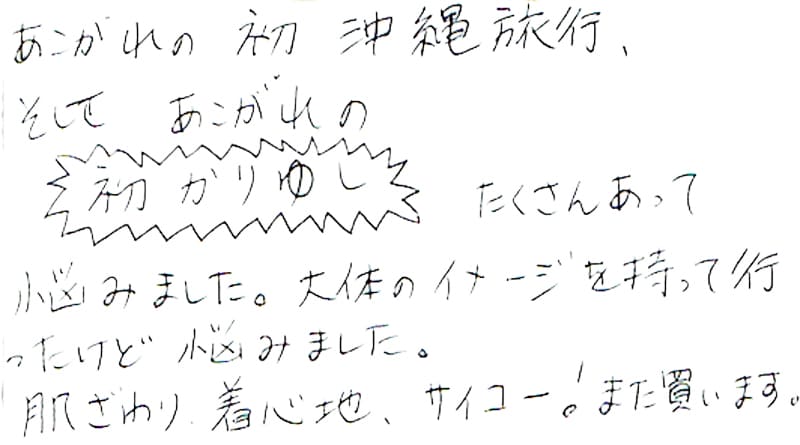 あこがれの 初 沖縄旅行、
そして あこがれの
初かりゆし たくさんあって
悩みました。大体のイメージを持って行
ったけど 悩みました。
肌ざわり、着心地、サイコー!また買います。